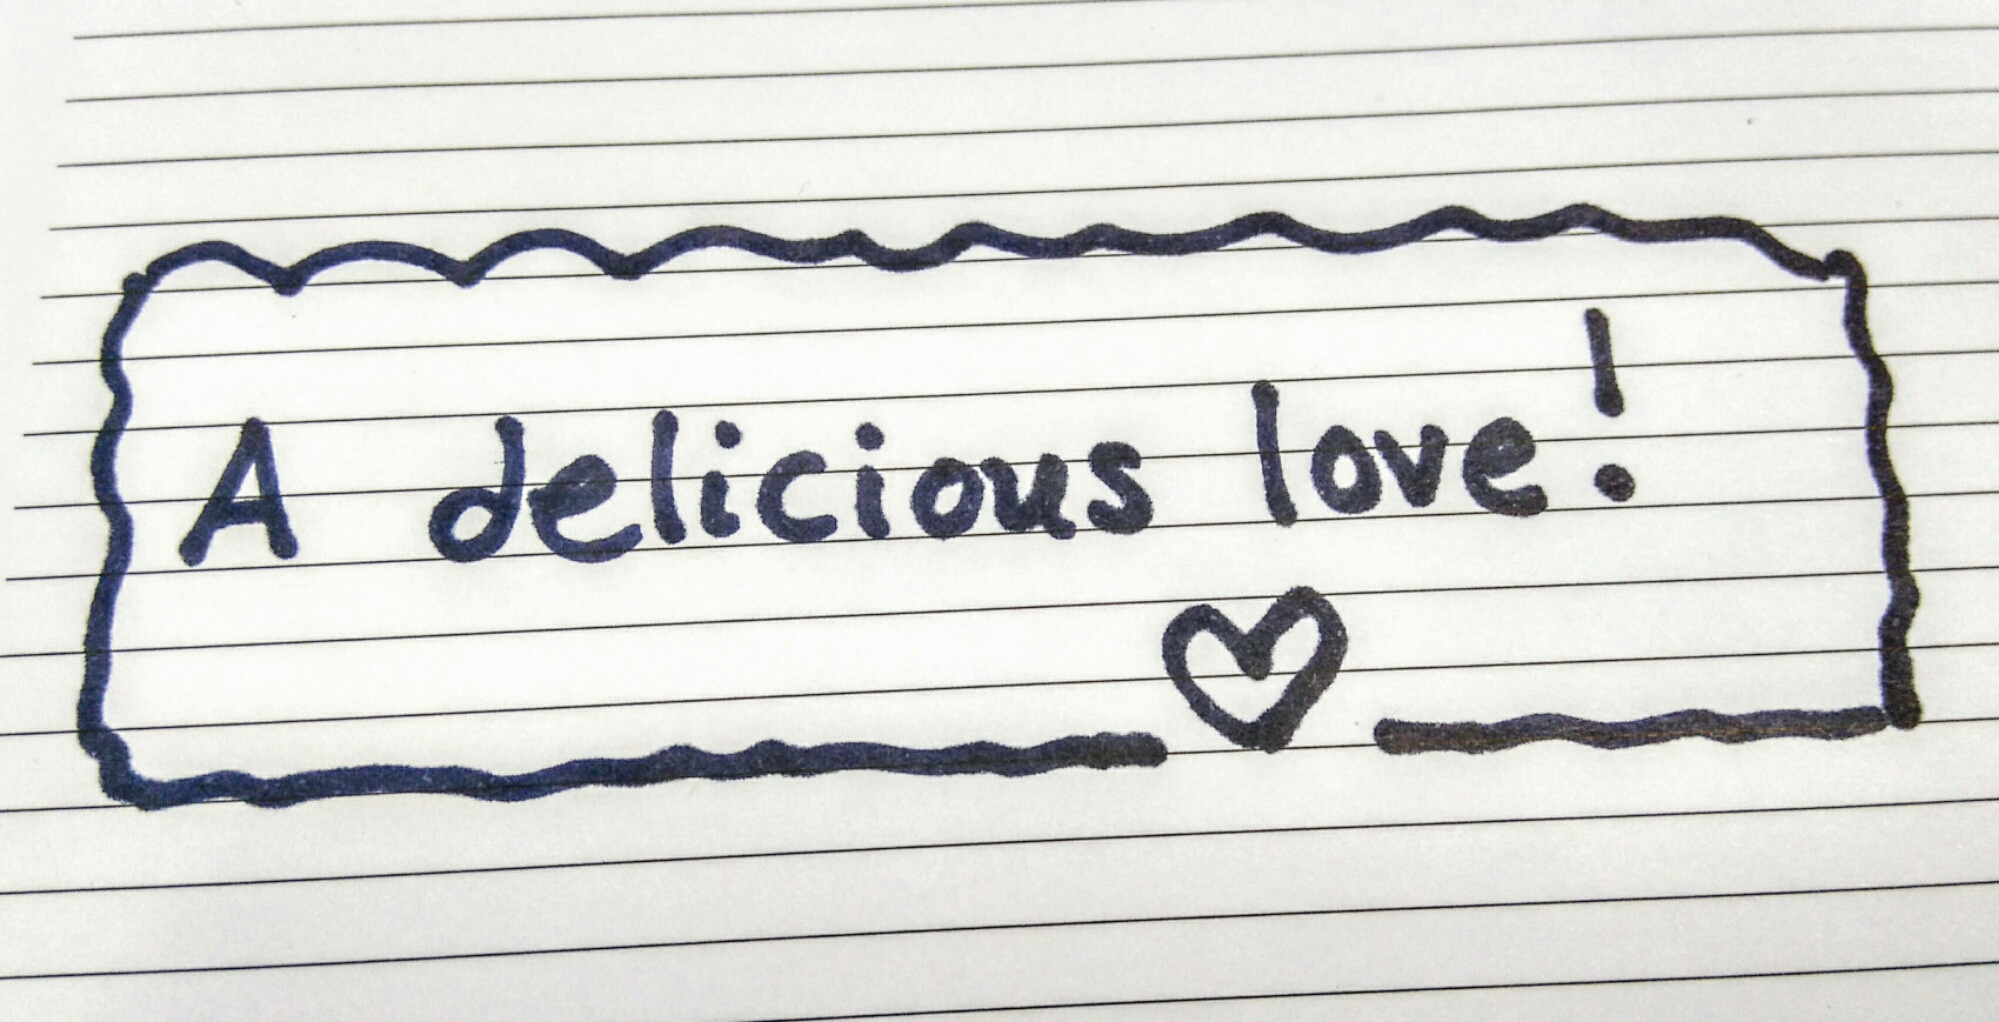 A delicious love!